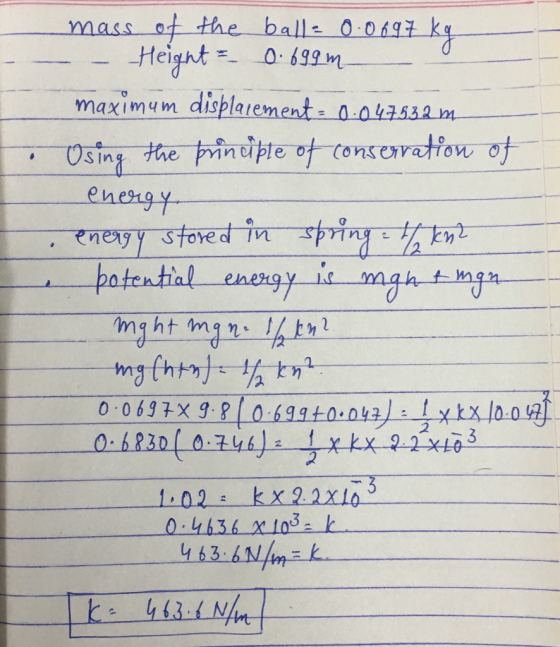 mass of the ball = 0.0697 kg
Height = 0.699m
maximum displacement = 0.047532 m
• Using the principle of conservation of
energy.
• energy stored in spring = 1/2 kx²
• potential energy is mgh + mgx
mgh + mgx = 1/2 kx²
mg(h+x) = 1/2 kx².
0.0697 × 9.8 (0.699+0.047) = 1/2 × k × (0.047)²
0.6830 (0.746) = 1/2 × k × 2.2 × 10⁻³
1.02 = k × 2.2 × 10⁻³
0.4636 × 10³ = k.
463.6 N/m = k.
k = 463.6 N/m